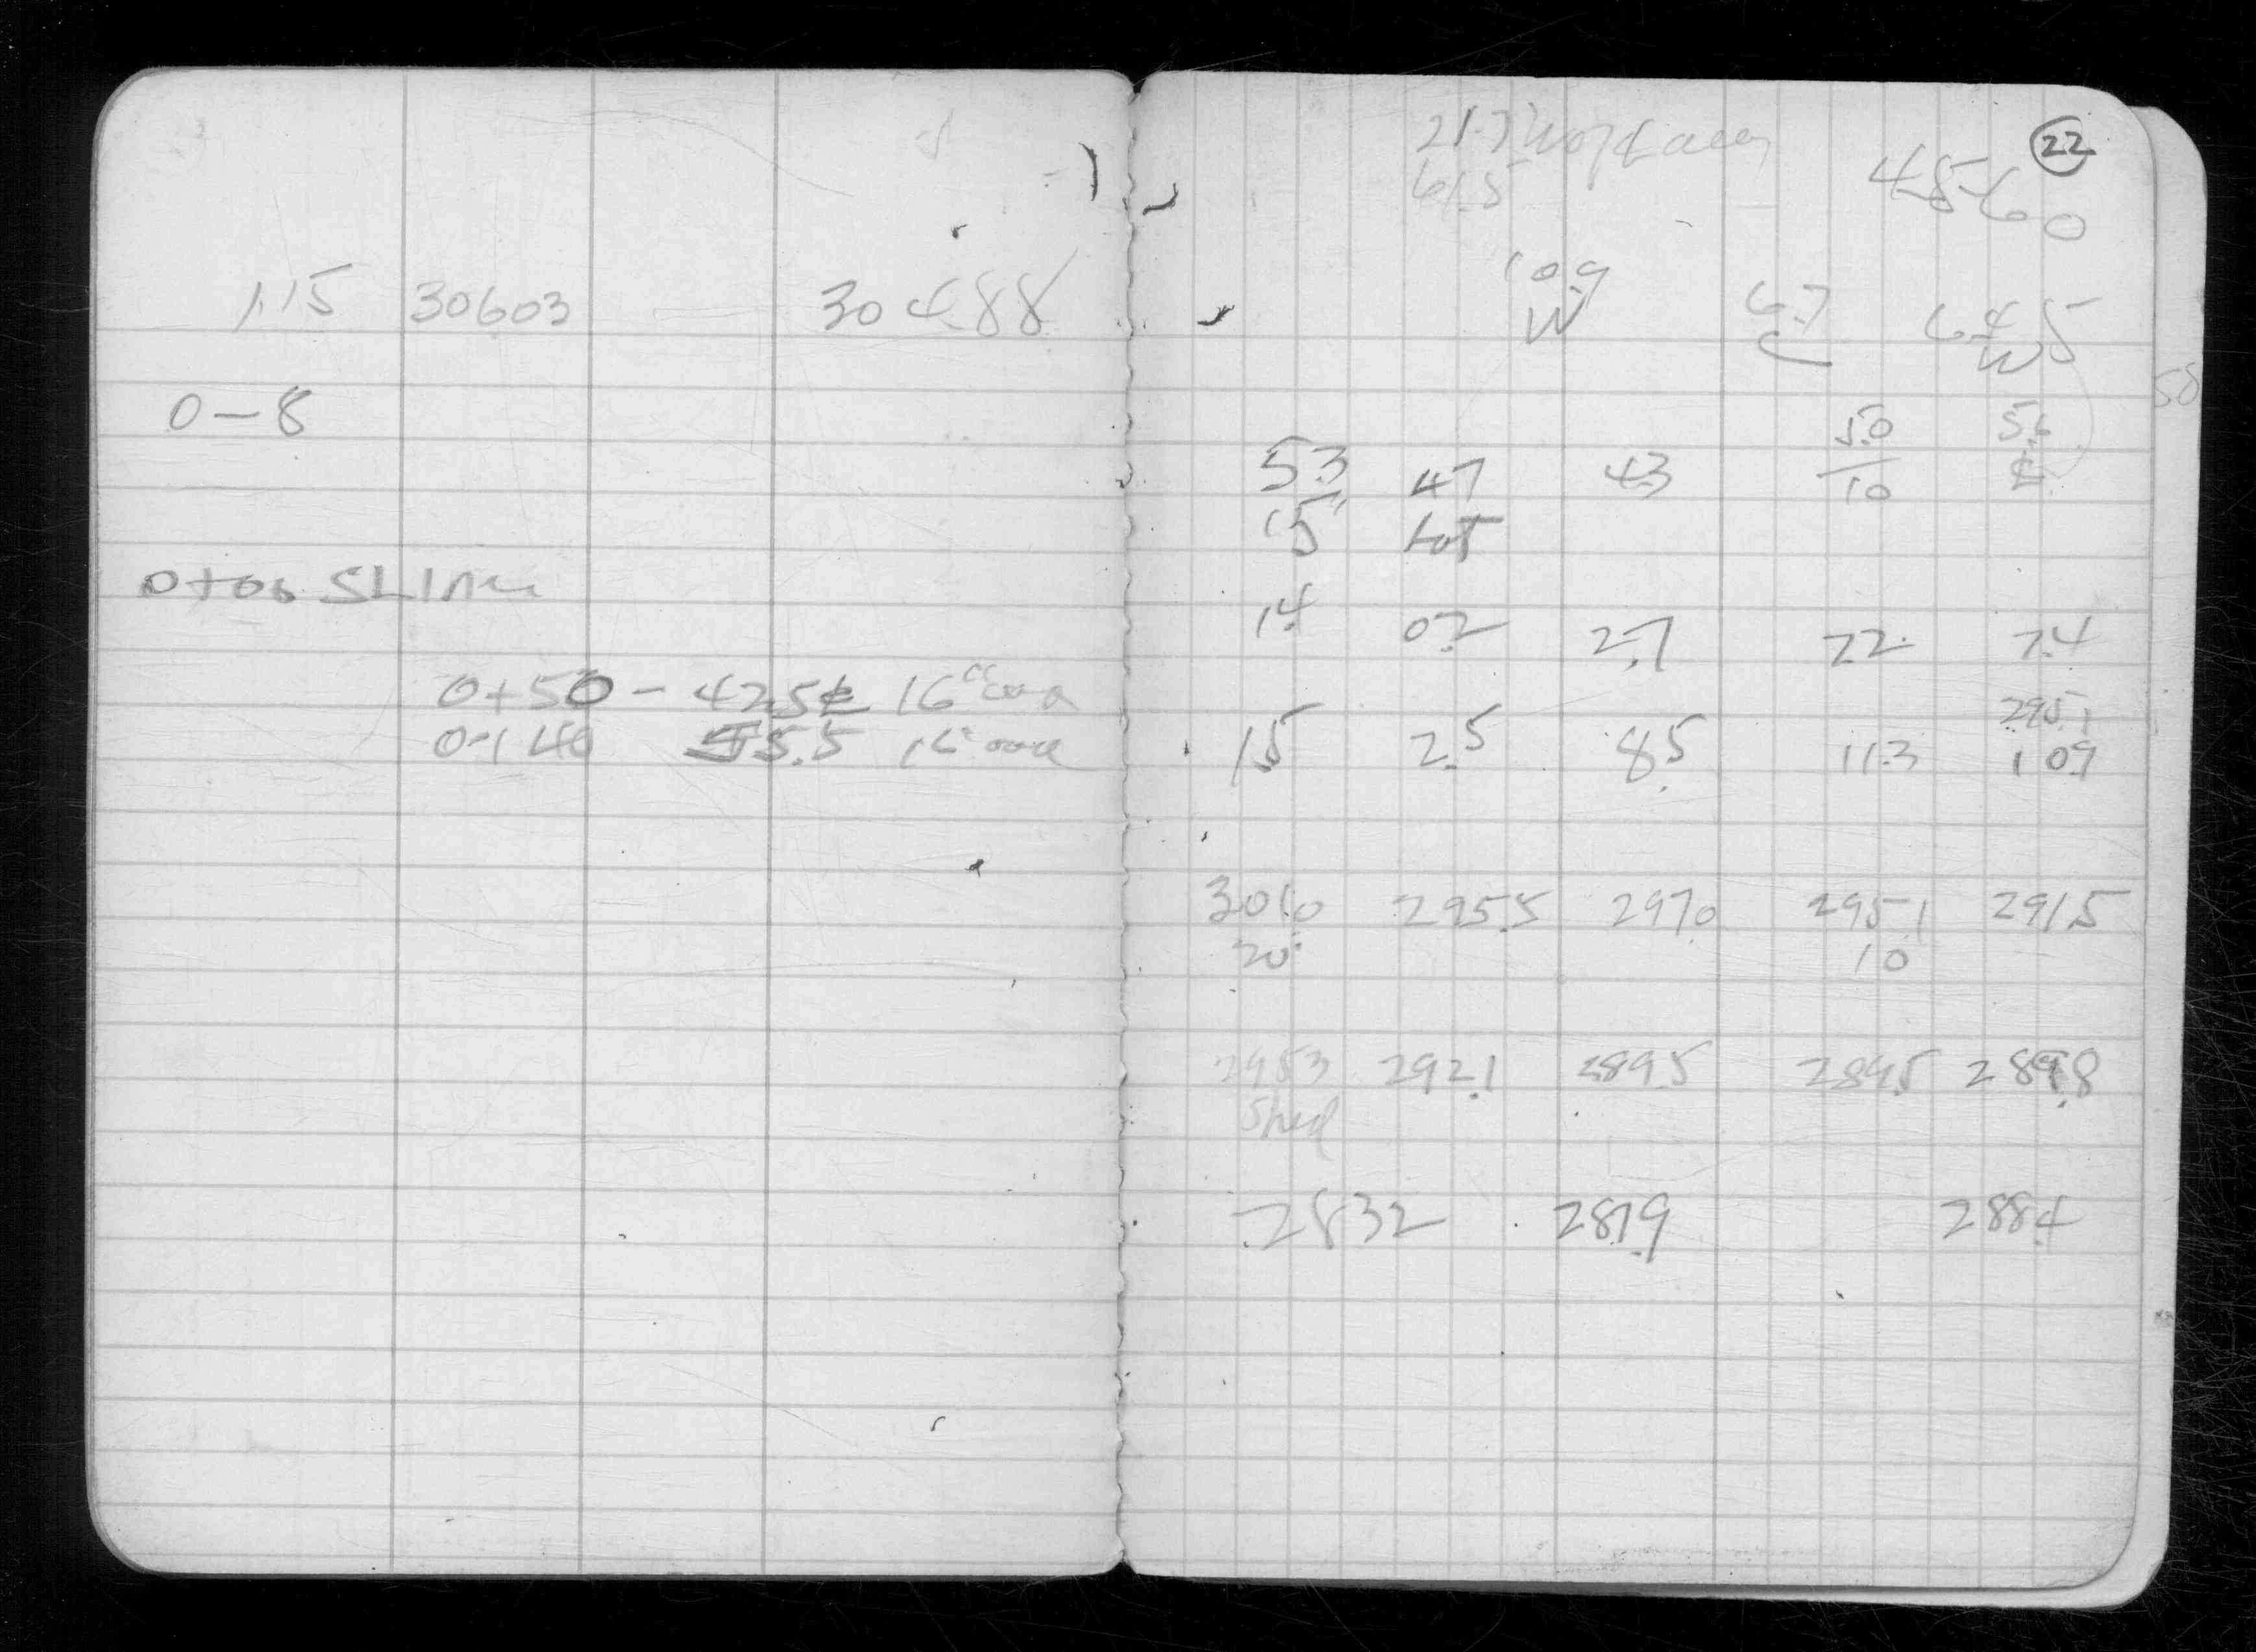 1.15 30603 30488
0-8
0+00 SLine
0+50 - 42.5 16"
0+140 35.5 16"
22
21.7
61.5
45-60
10.9 6.7 6.4 5
W C W
5.0 5.6
5.3 4.7 4.3 10
15 Lot
1.4 0.2 2.7 7.2 7.4
295.1
15 2.5 8.5 11.3 10.9
301.0 295.5 297.0 295.1 291.5
20 10
295.3 292.1 289.5 289.5 289.8
Shed
283.2 287.9 288.4
58